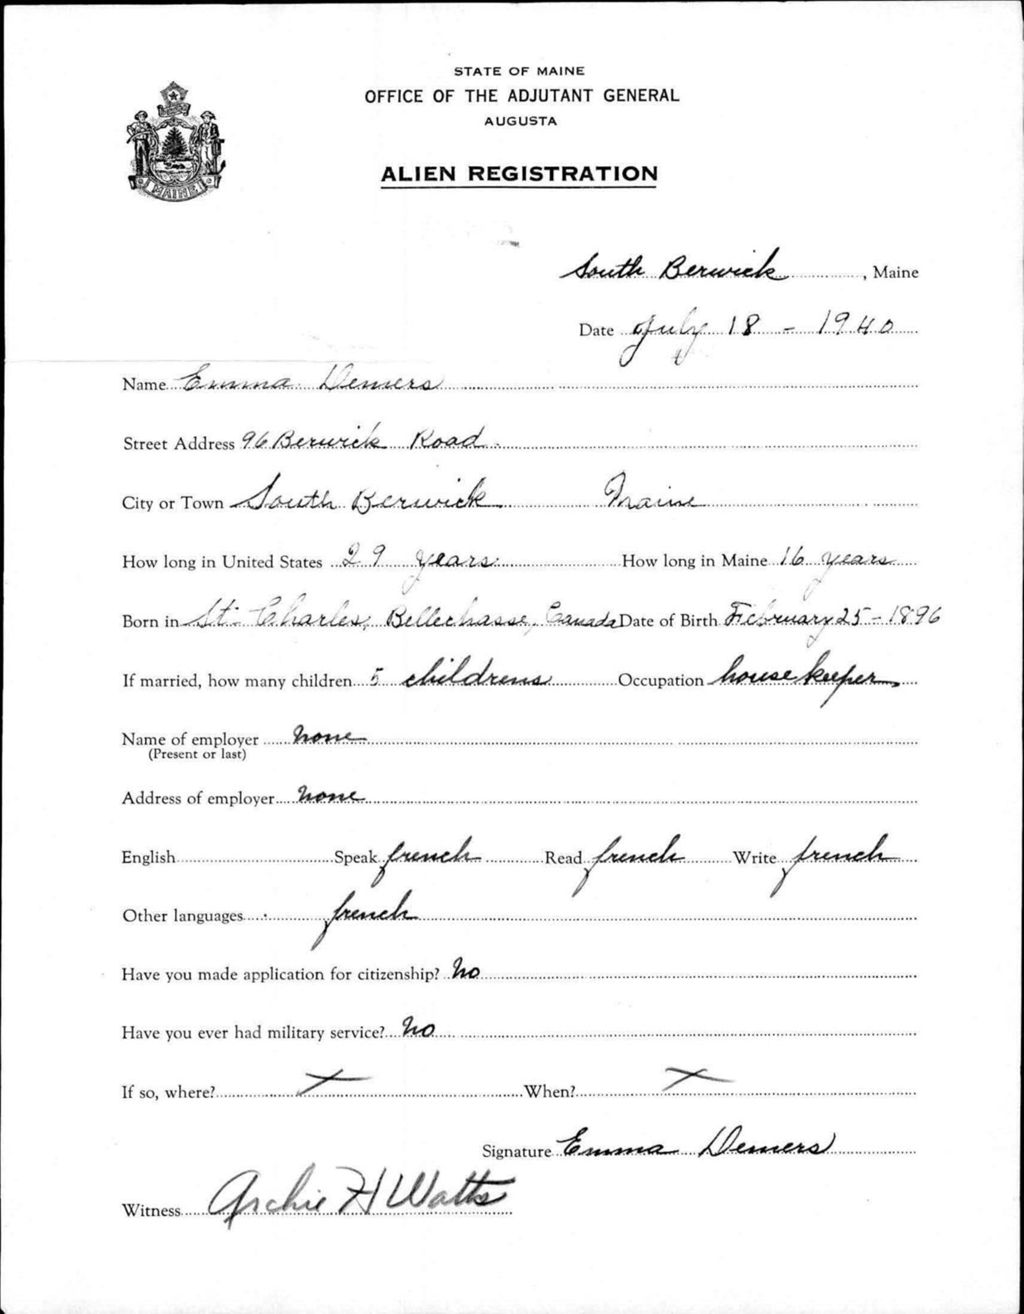 STATE OF MAINE
OFFICE OF THE ADJUTANT GENERAL
AUGUSTA
ALIEN REGISTRATION
MAINE
South Berwick, Maine
Date July 18 - 1940
Name Emma Demers
Street Address 96 Berwick Road
City or Town South Berwick Maine
How long in United States 29 years How long in Maine 16 years
Born in St. Charles, Bellechasse, Canada Date of Birth February 25 - 1896
If married, how many children 5 childrens Occupation housekeeper
Name of employer none
(Present or last)
Address of employer none
English Speak french Read french Write french
Other languages french
Have you made application for citizenship? No
Have you ever had military service? No
If so, where? X When? X
Signature Emma Demers
Witness Archie H Watts